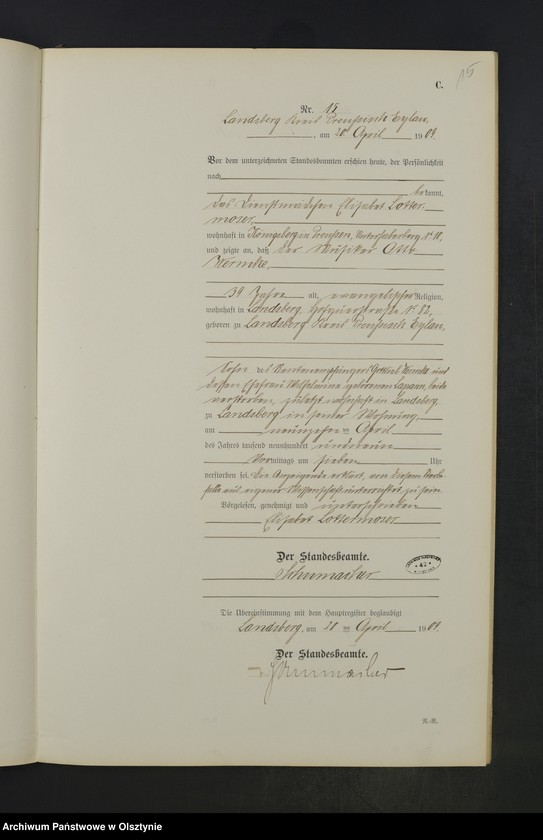 15
C.
Nr. 15
Landsberg Kreis Preußisch Eylau,
, am 20 April 1909.
Vor dem unterzeichneten Standesbeamten erschien heute, der Persönlichkeit
nach
bekannt,
das Dienstmädchen Elisabet Lotter-
moser
wohnhaft in Königsberg in Preußen, Unterhaberberg No
und zeigte an, daß der Musiker Otto
39 Jahre alt, evangelischer Religion,
wohnhaft in Landsberg, No 82,
geboren zu Landsberg Kreis Preußisch Eylau,
Sohn des Gottlieb und
dessen Ehefrau Wilhelmine geborenen beide
verstorben, zuletzt wohnhaft in Landsberg,
zu Landsberg in seiner Wohnung
am neunzehnten April
des Jahres tausend neunhundert und neun
Vormittags um sieben Uhr
verstorben sei. Die Anzeigende erklärt, von diesem Sterbe-
falle aus eigener Wissenschaft unterrichtet zu sein
Vorgelesen, genehmigt und unterschrieben
Elisabet Lottermoser
Der Standesbeamte.
Schumacher
Die Übereinstimmung mit dem Hauptregister beglaubigt
Landsberg, am 20 ten April 1909.
Der Standesbeamte.
Schumacher
Archiwum Państwowe w Olsztynie